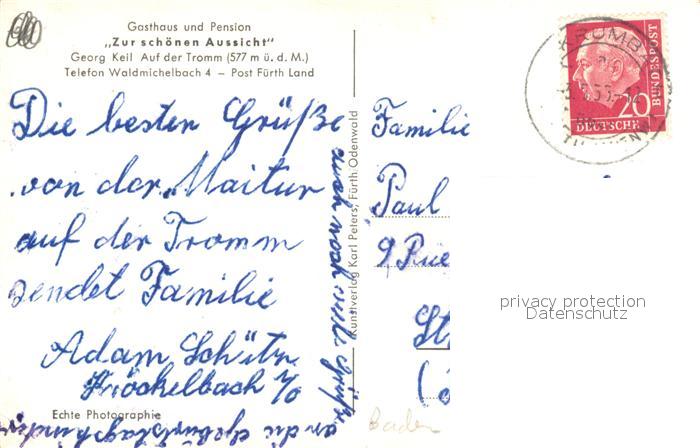 Gasthaus und Pension
„Zur schönen Aussicht"
Georg Keil Auf der Tromm (577 m ü. d. M.)
Telefon Waldmichelbach 4 – Post Fürth Land
Die besten Grüße
von der Maitur
auf der Tromm
sendet Familie
Adam Schütz
Kröckelbach i/O
auch noch viele Grüße
an die Geburtstagskinder
Echte Photographie
Kunstverlag Karl Peters, Fürth/Odenwald
KROMBA
20
BUNDESPOST
DEUTSCHE
Familie
Paul
9 Rue
St
Baden
privacy protection
Datenschutz